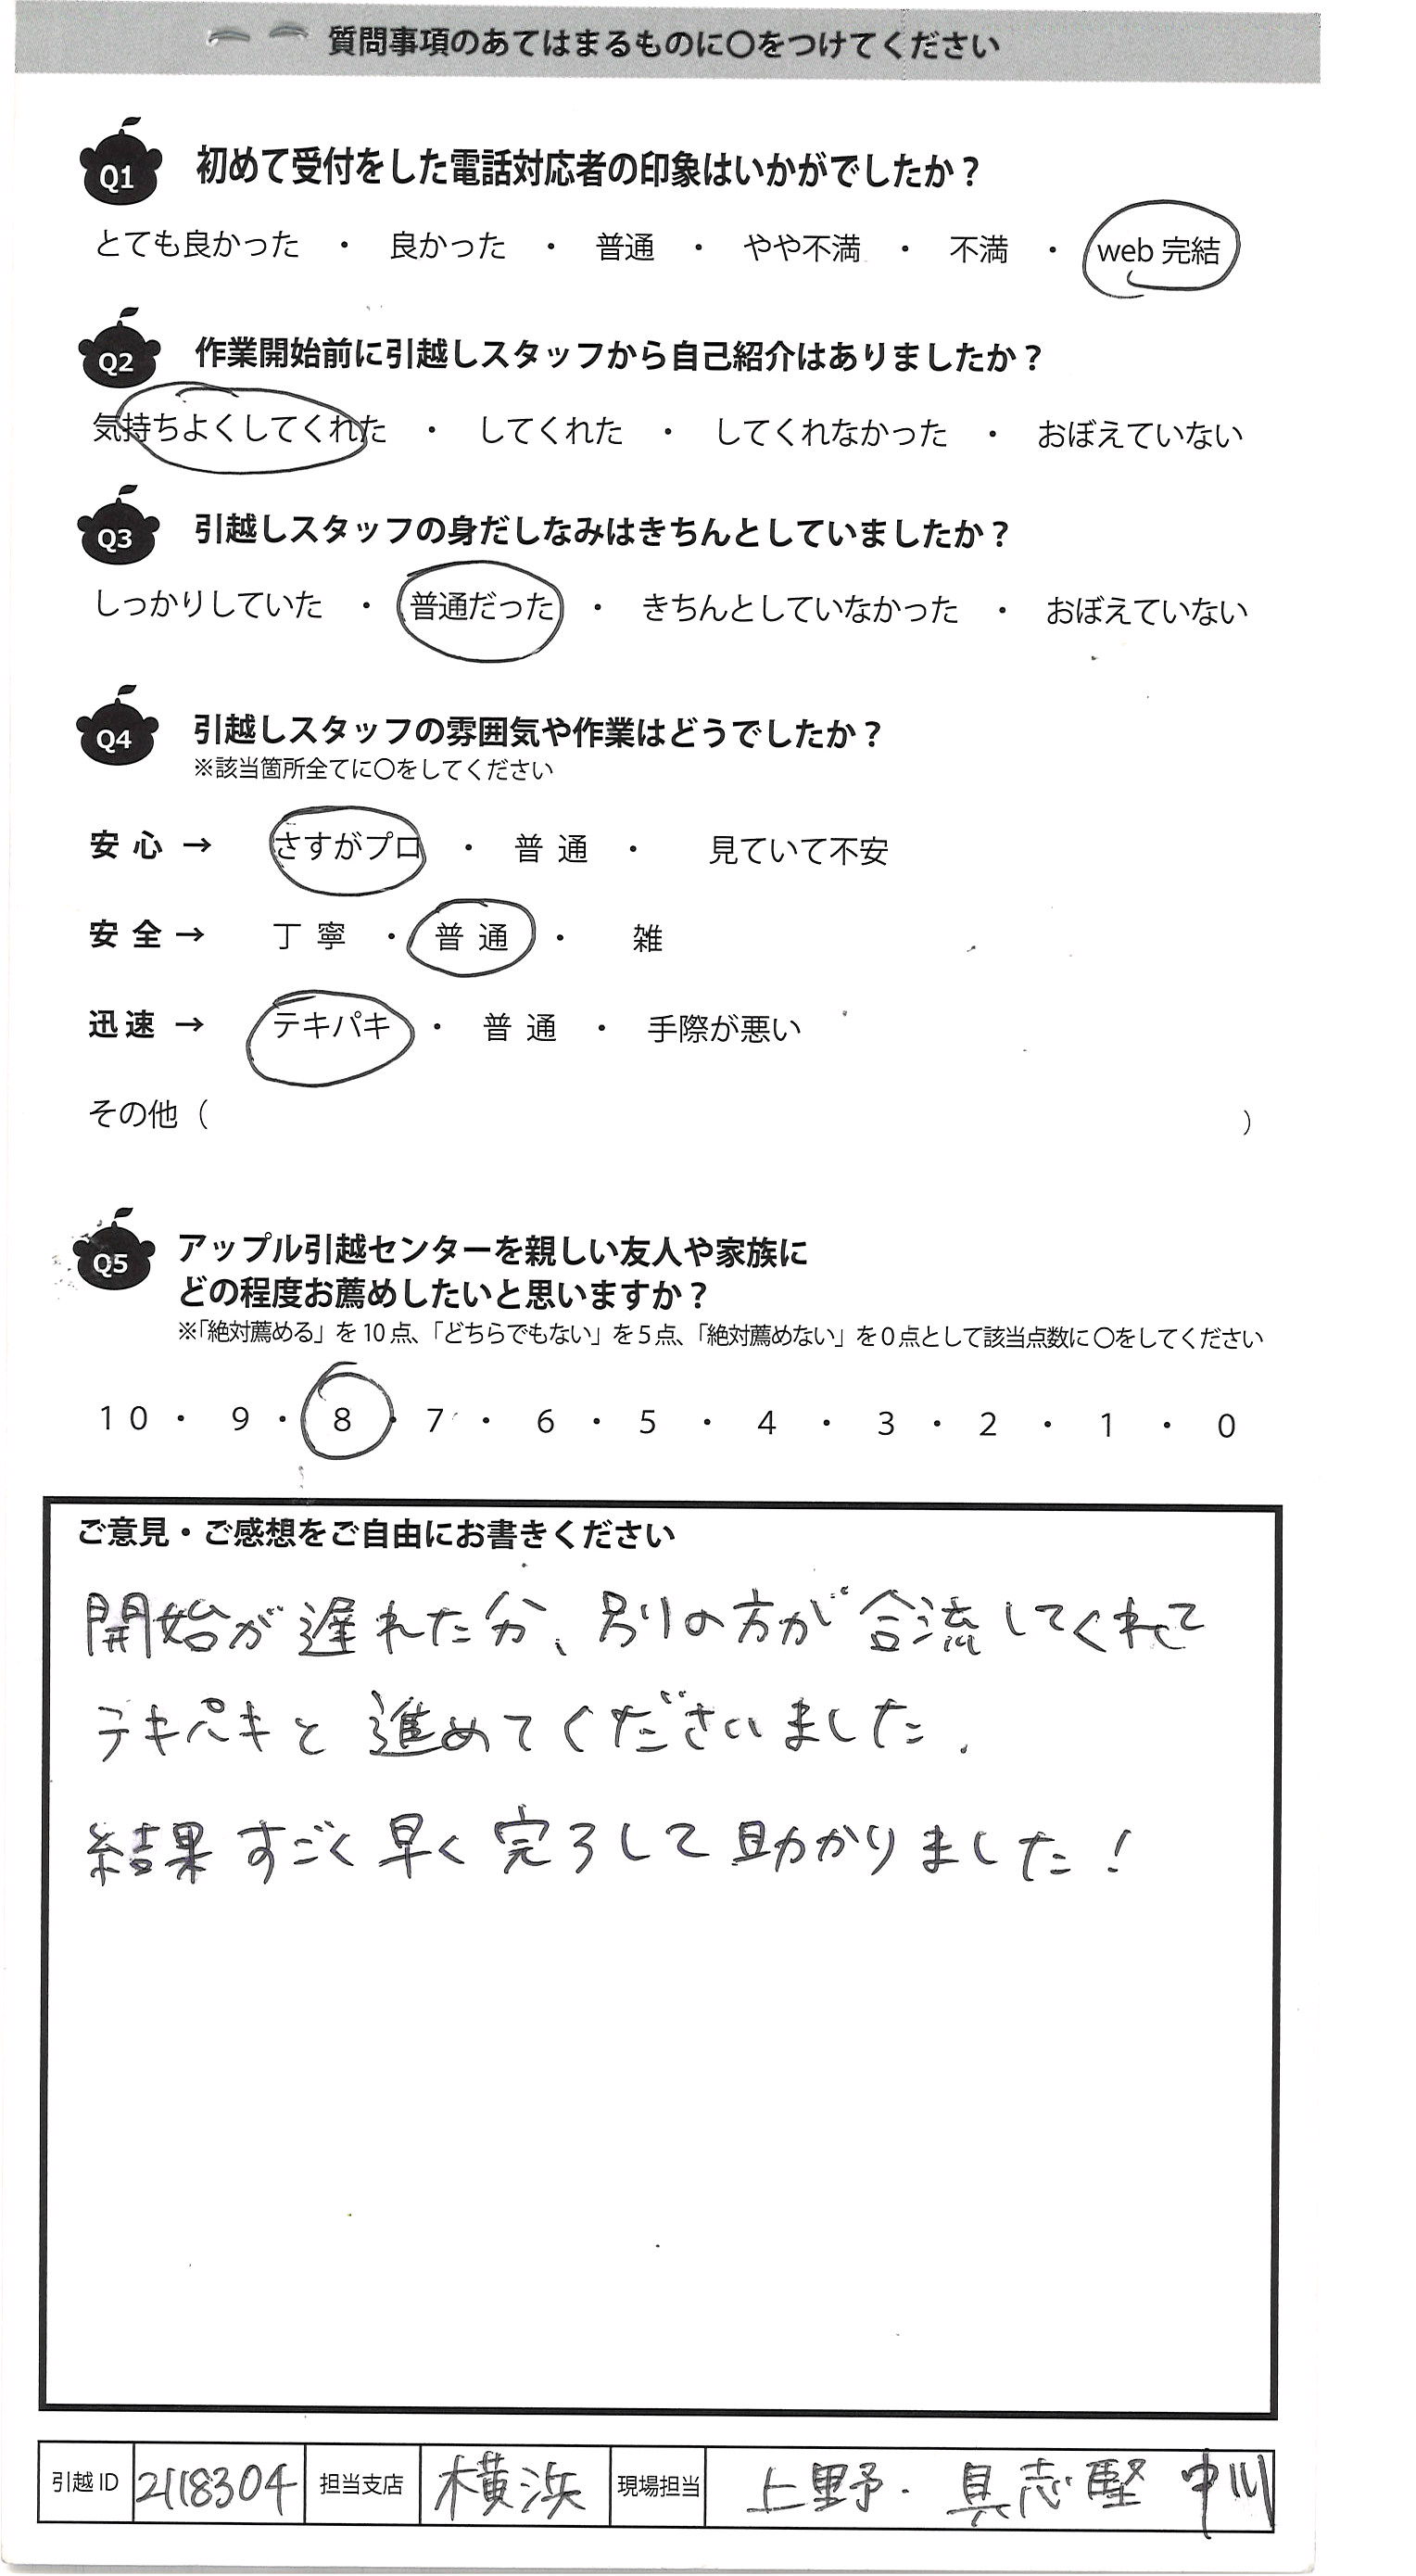 質問事項のあてはまるものに〇をつけてください
Q1 初めて受付をした電話対応者の印象はいかがでしたか？
とても良かった ・ 良かった ・ 普通 ・ やや不満 ・ 不満 ・ web 完結
Q2 作業開始前に引越しスタッフから自己紹介はありましたか？
気持ちよくしてくれた ・ してくれた ・ してくれなかった ・ おぼえていない
Q3 引越しスタッフの身だしなみはきちんとしていましたか？
しっかりしていた ・ 普通だった ・ きちんとしていなかった ・ おぼえていない
Q4 引越しスタッフの雰囲気や作業はどうでしたか？
※該当箇所全てに〇をしてください
安心 → さすがプロ ・ 普通 ・ 見ていて不安
安全 → 丁寧 ・ 普通 ・ 雑
迅速 → テキパキ ・ 普通 ・ 手際が悪い
その他（ ）
Q5 アップル引越センターを親しい友人や家族に
どの程度お薦めしたいと思いますか？
※「絶対薦める」を10点、「どちらでもない」を5点、「絶対薦めない」を0点として該当点数に〇をしてください
10 ・ 9 ・ 8 ・ 7 ・ 6 ・ 5 ・ 4 ・ 3 ・ 2 ・ 1 ・ 0
ご意見・ご感想をご自由にお書きください
開始が遅れた分、別の方が合流してくれて
テキパキと進めてくださいました.
結果すごく早く完了して助かりました！
引越ID 2118304 担当支店 横浜 現場担当 上野・具志堅 中川